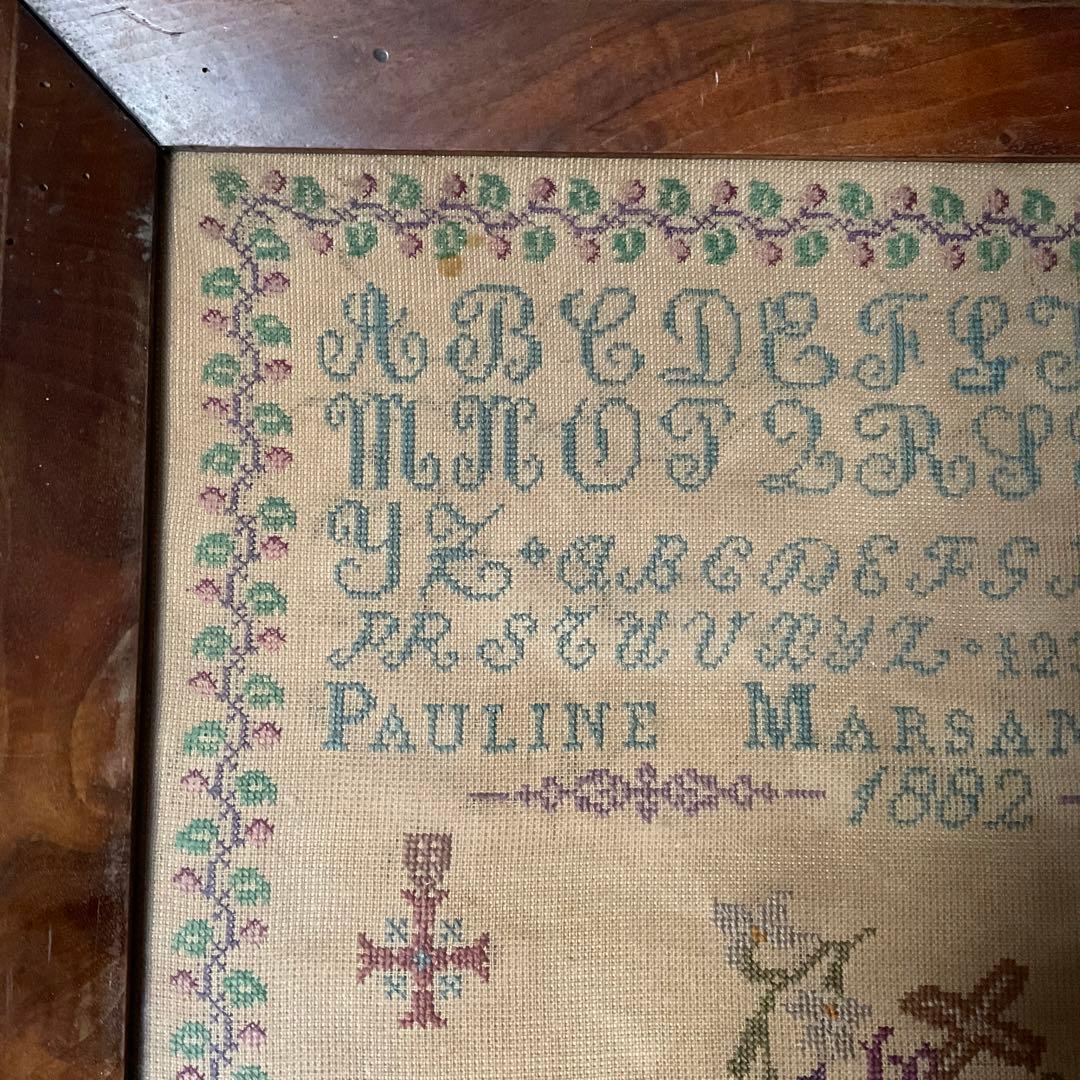 A B C D E F G
M N O P Q R S
Y Z A B C D E F G
P R S T U V X Y Z 12
PAULINE MARSAN
1882